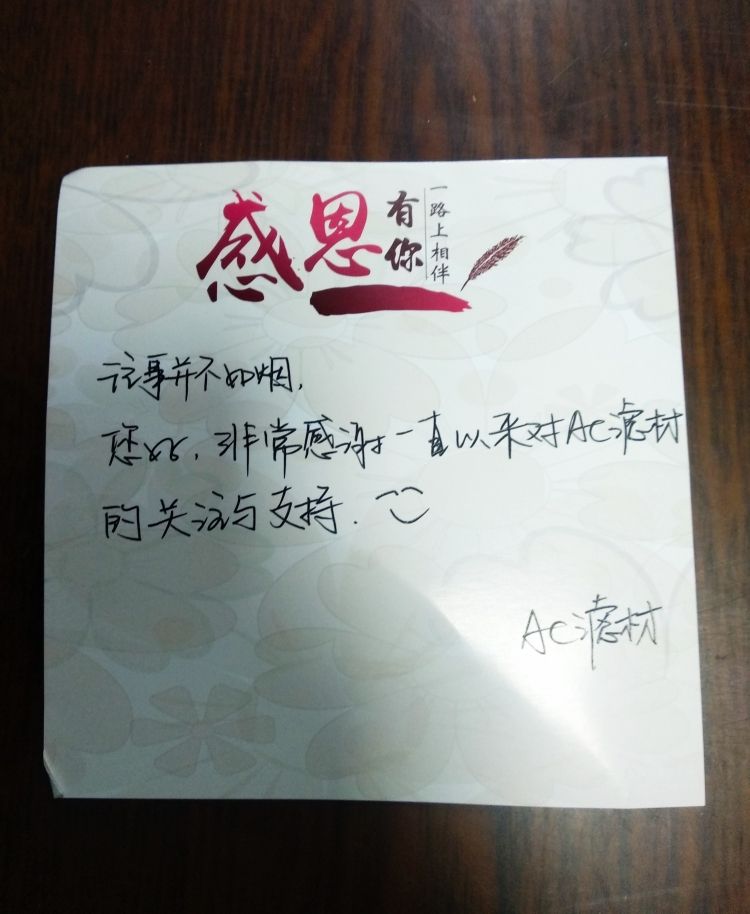 感恩
有你
一路上相伴
往事并不如烟,
您好,非常感谢一直以来对AC滤材
的关注与支持.
AC滤材